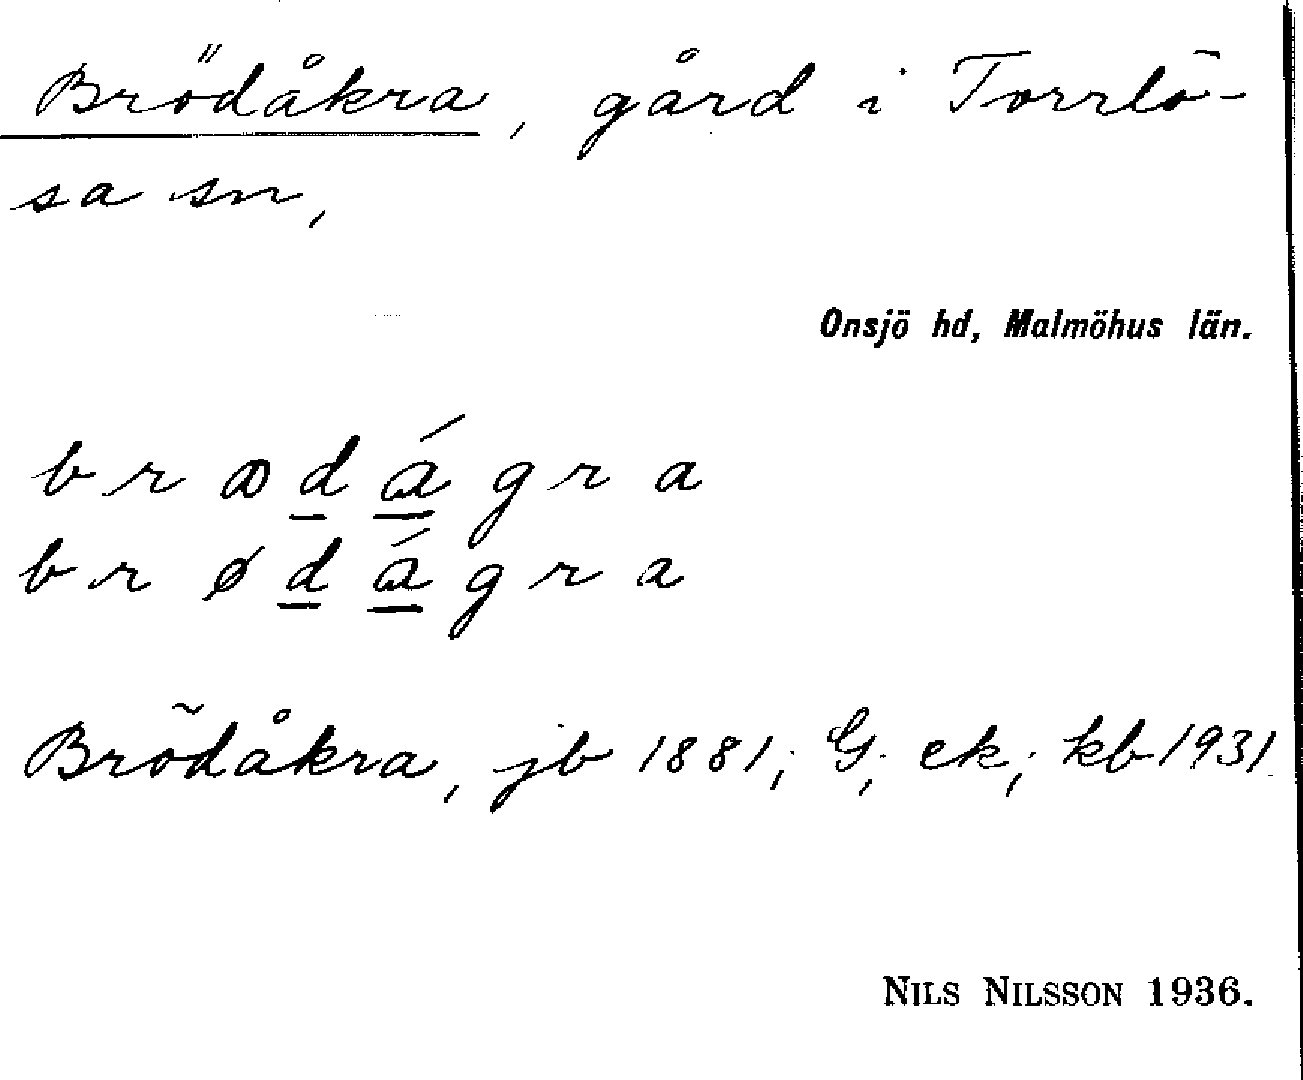 Brödåkra, gård i Torrlö-
sa sn,
Onsjö hd, Malmöhus län.
b r ꝏ d á g r a
b r ø d á g r a
Brödåkra, jb 1881; G; ek; kb 1931
NILS NILSSON 1936.